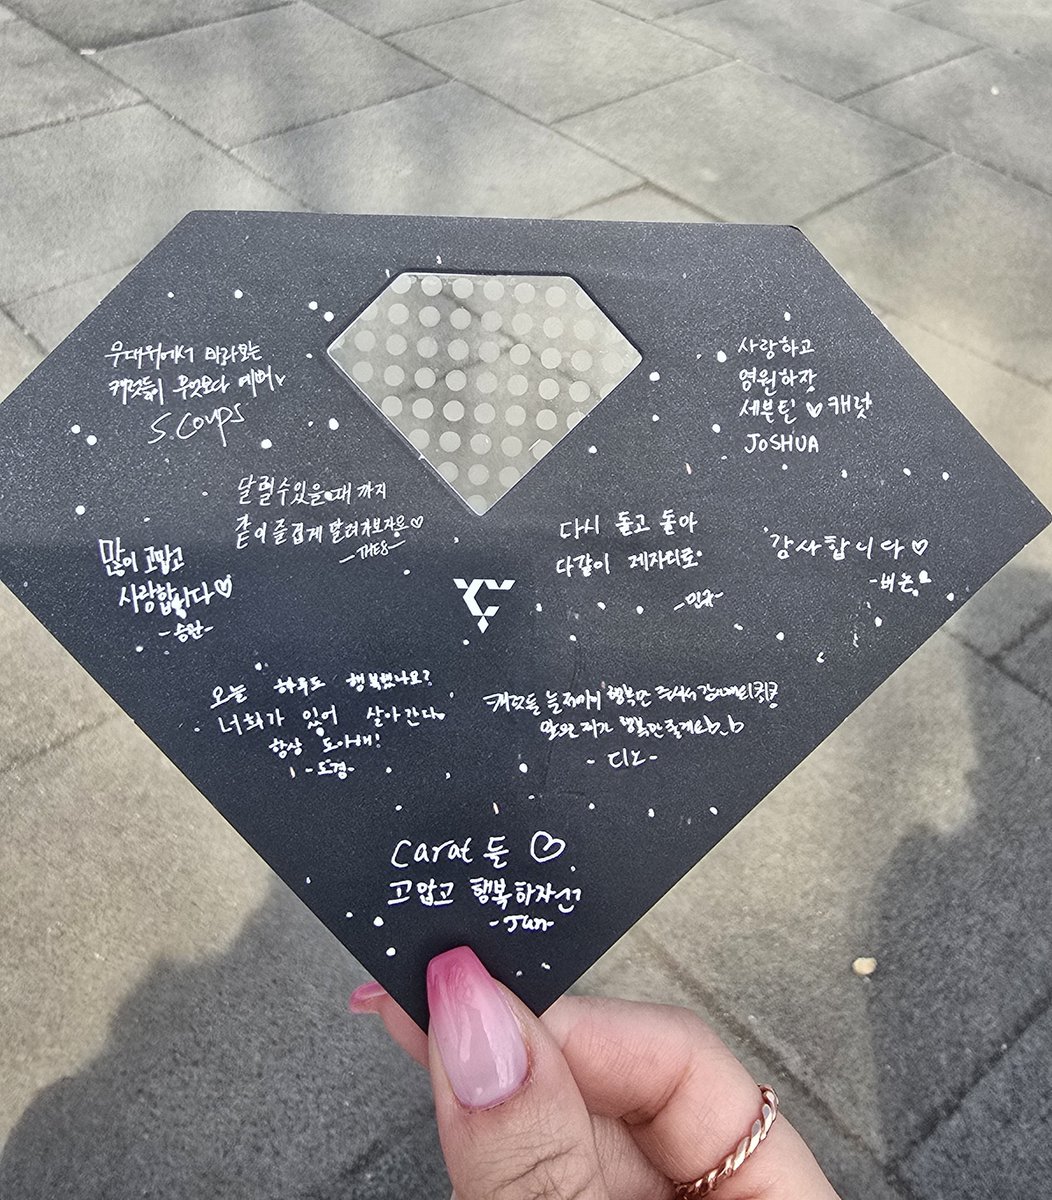 무대위에서 바라보는
캐럿들이 무엇보다 예뻐
S.COUPS
사랑하고
영원하장
세븐틴 ♡ 캐럿
JOSHUA
달릴수있을때 까지
같이 즐겁게 달려가보자용♡
-THE8-
다시 돌고 돌아
다같이 제자리로
-민규-
감사합니다♡
-버논
많이 고맙고
사랑합니다♡
-승관-
오늘 하루도 행복했나요?
너희가 있어 살아간다
항상 도아해!
-도겸-
캐럿들 늘 저에게 행복만 주셔서
앞으로 제가 행복만 줄게요
-디노-
Carat 들 ♡
고맙고 행복하자
-Jun-